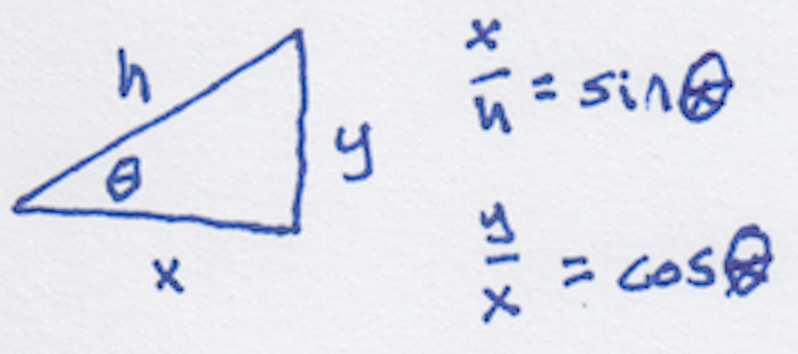 h
θ
y
x
x/h = sinθ
y/x = cosθ